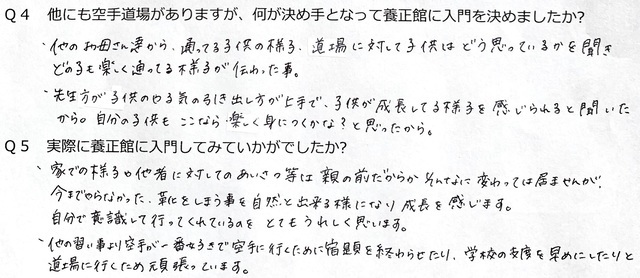 Q4 他にも空手道場がありますが、何が決め手となって養正館に入門を決めましたか?
・他のお母さん達から、通ってる子供の様子、道場に対して子供はどう思っているかを聞き
どの子も楽しく通ってる様子が伝わった事。
・先生方が子供のやる気の引き出し方が上手で、子供が成長してる様子を感じられると聞いた
から。自分の子供もここなら楽しく身につくかな?と思ったから。
Q5 実際に養正館に入門してみていかがでしたか?
・家での様子や他者に対してのあいさつ等は親の前だからかそんなに変わっては居ませんが、
今までやらなかった、靴をしまう事を自然と出来る様になり成長を感じます。
自分で意識して行ってくれているのをとてもうれしく思います。
・他の習い事より空手が一番好きで空手に行くために宿題を終わらせたり、学校の支度を早めにしたりと
道場に行くため頑張っています。